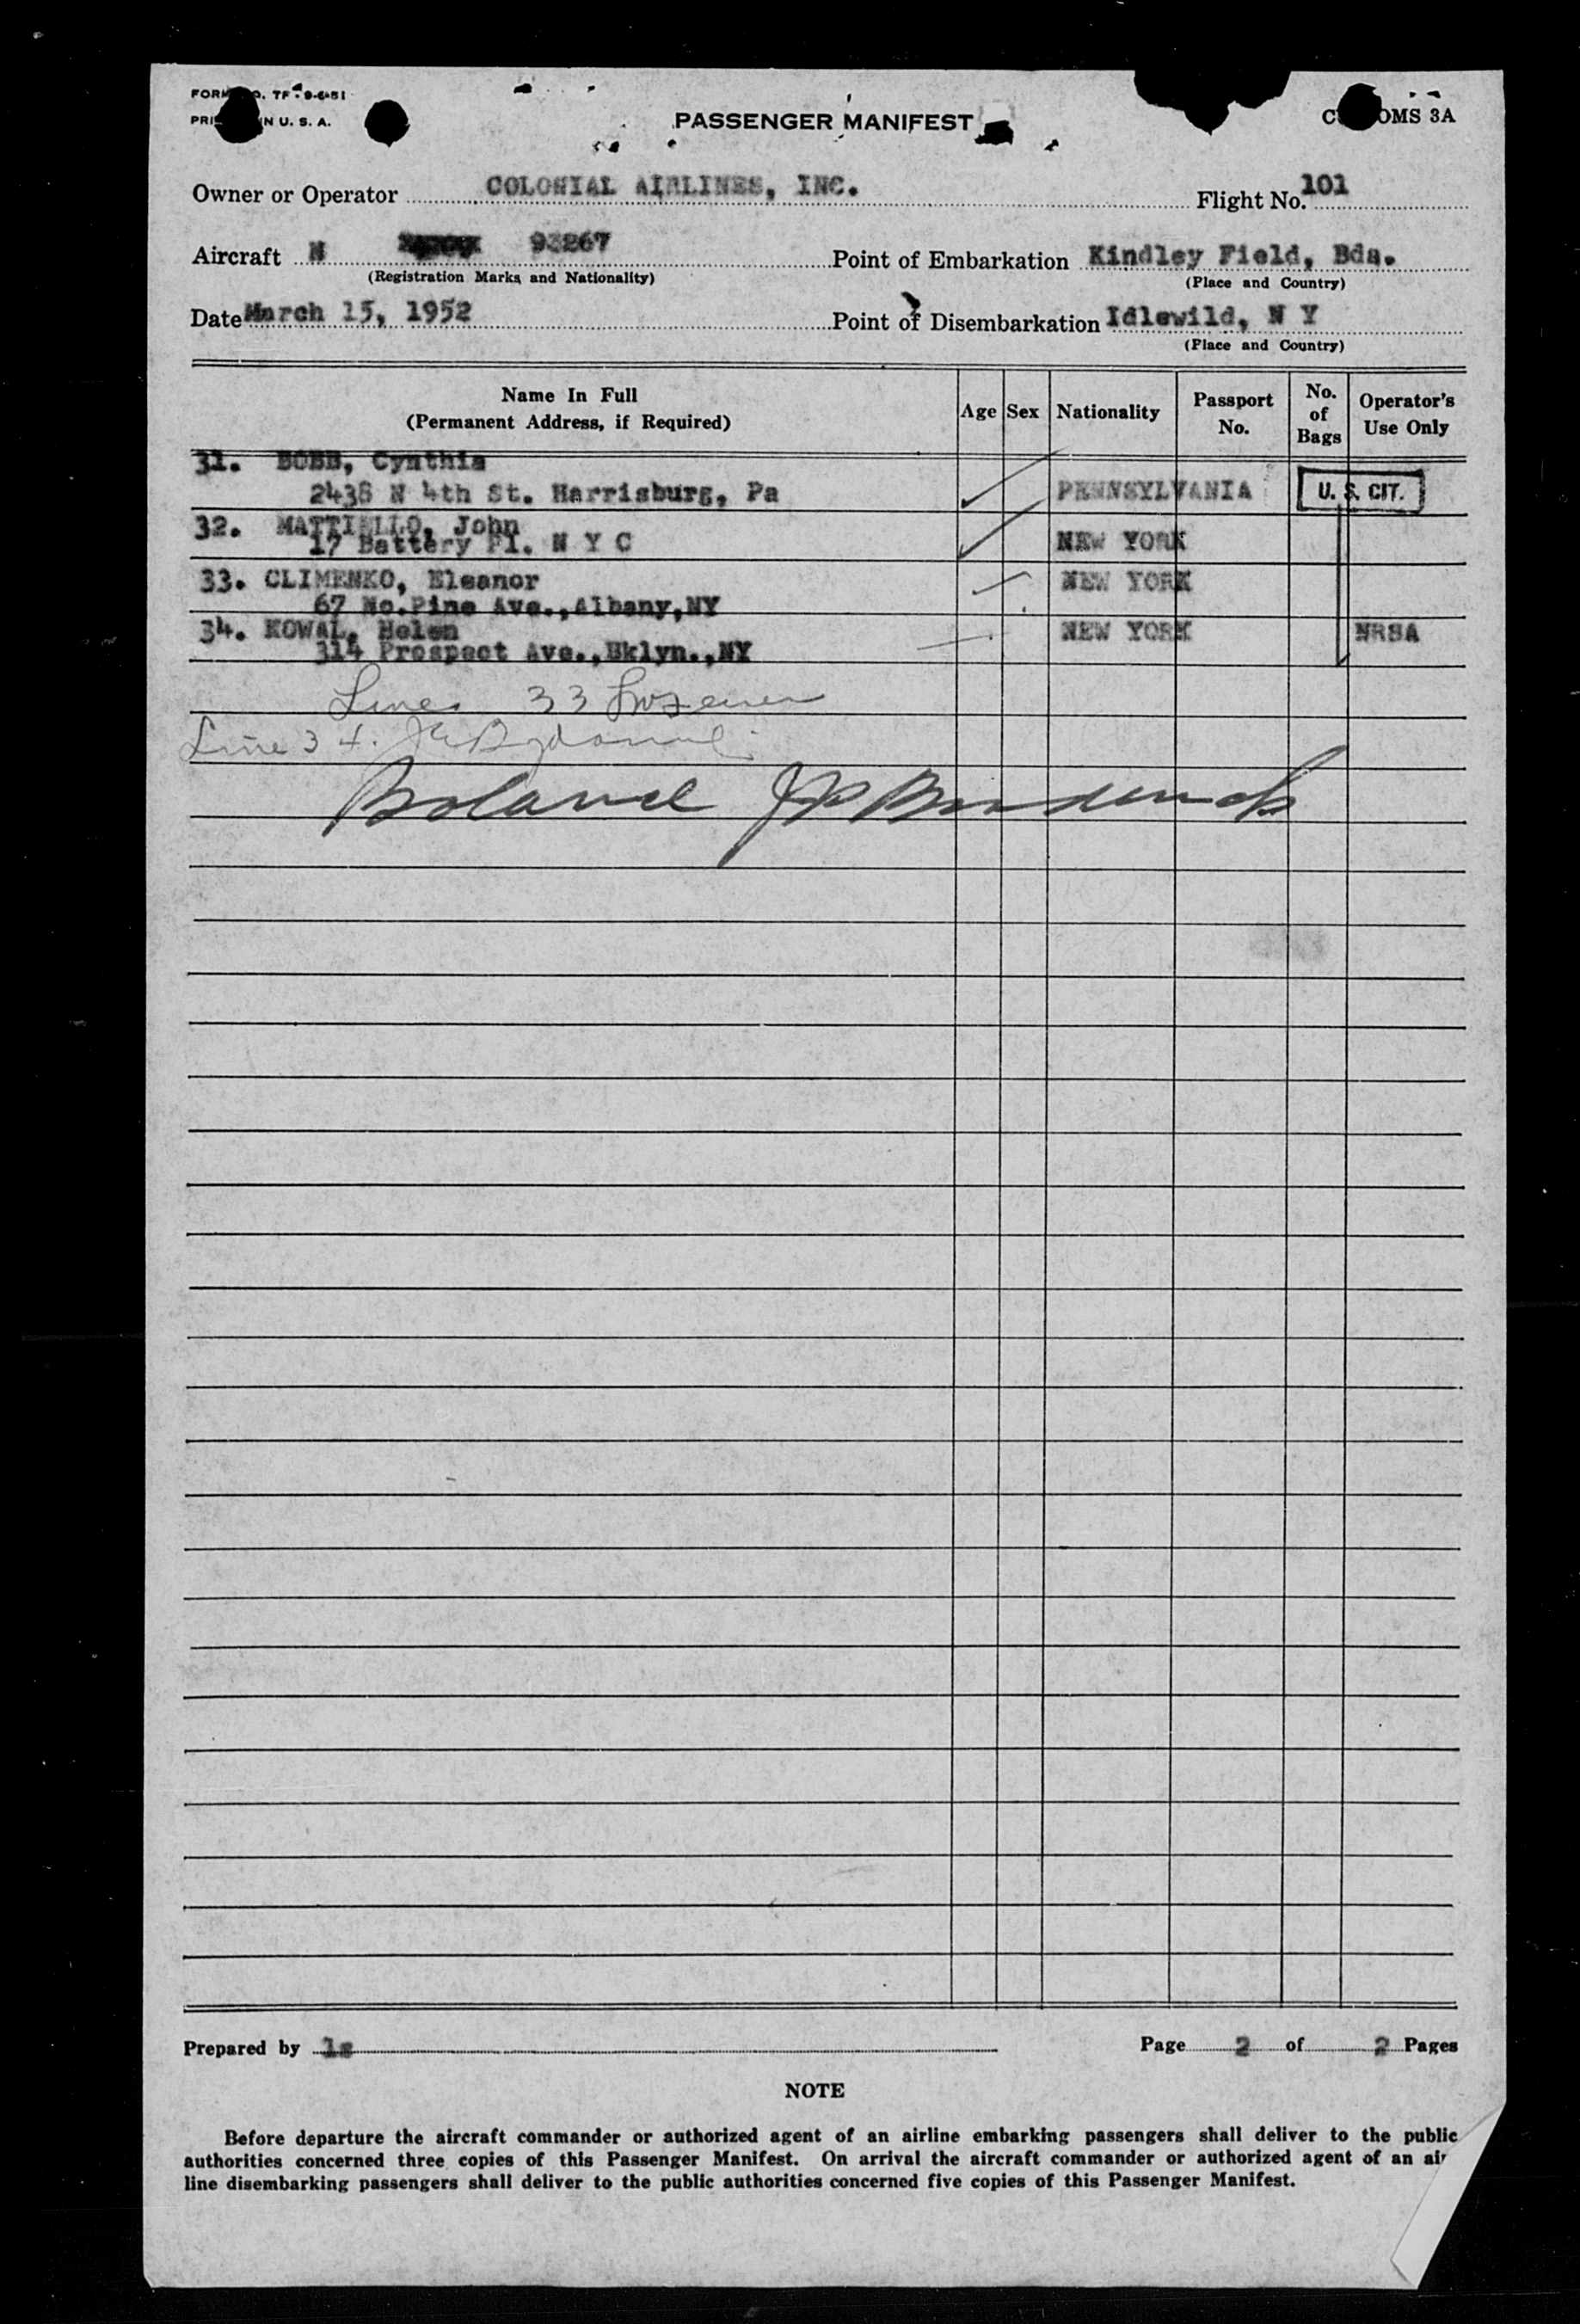 TF - 9-6-51
IN U. S. A.
PASSENGER MANIFEST
3A
Owner or Operator COLONIAL AIRLINES, INC. Flight No. 101
Aircraft N 93267 Point of Embarkation Kindley Field, Bda.
(Registration Marks and Nationality) (Place and Country)
Date March 15, 1952 Point of Disembarkation Idlewild, N Y
(Place and Country)
Name In Full
(Permanent Address, if Required)
Age Sex Nationality Passport No. No. of Bags Operator's Use Only
31. BOBB, Cynthia
2438 N 4th St. Harrisburg, Pa PENNSYLVANIA U. S. CIT.
32. MATTIELLO, John
17 Battery Pl. N Y C NEW YORK
33. CLIMENKO, Eleanor NEW YORK
67 No.Pine Ave.,Albany,NY
34. KOWAL, Helen NEW YORK NRSA
314 Prospect Ave.,Bklyn.,NY
Lines 33
Line 34.
Prepared by ls Page 2 of 2 Pages
NOTE
Before departure the aircraft commander or authorized agent of an airline embarking passengers shall deliver to the public
authorities concerned three copies of this Passenger Manifest. On arrival the aircraft commander or authorized agent of an air
line disembarking passengers shall deliver to the public authorities concerned five copies of this Passenger Manifest.